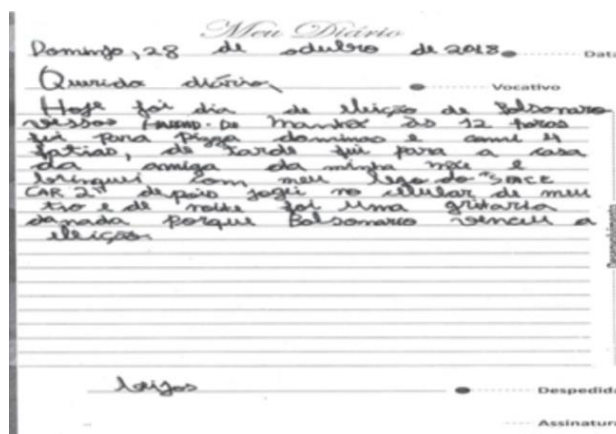 Meu Diário
Domingo, 28 de outubro de 2018
Data
Querido diário,
Vocativo
Hoje foi dia de eleição de Bolsonaro
vessos Haddad. De manhã às 12 horas
fui para Pizza dominos e comi 4
fatias, de tarde fui para a casa
da amiga da minha mãe e
brinquei com meu lego do "SPACE
CAR 2" depois joguei no celular de meu
tio e de noite foi uma gritaria
danada porque Bolsonaro venceu a
eleição.
beijos
Despedida
Assinatura